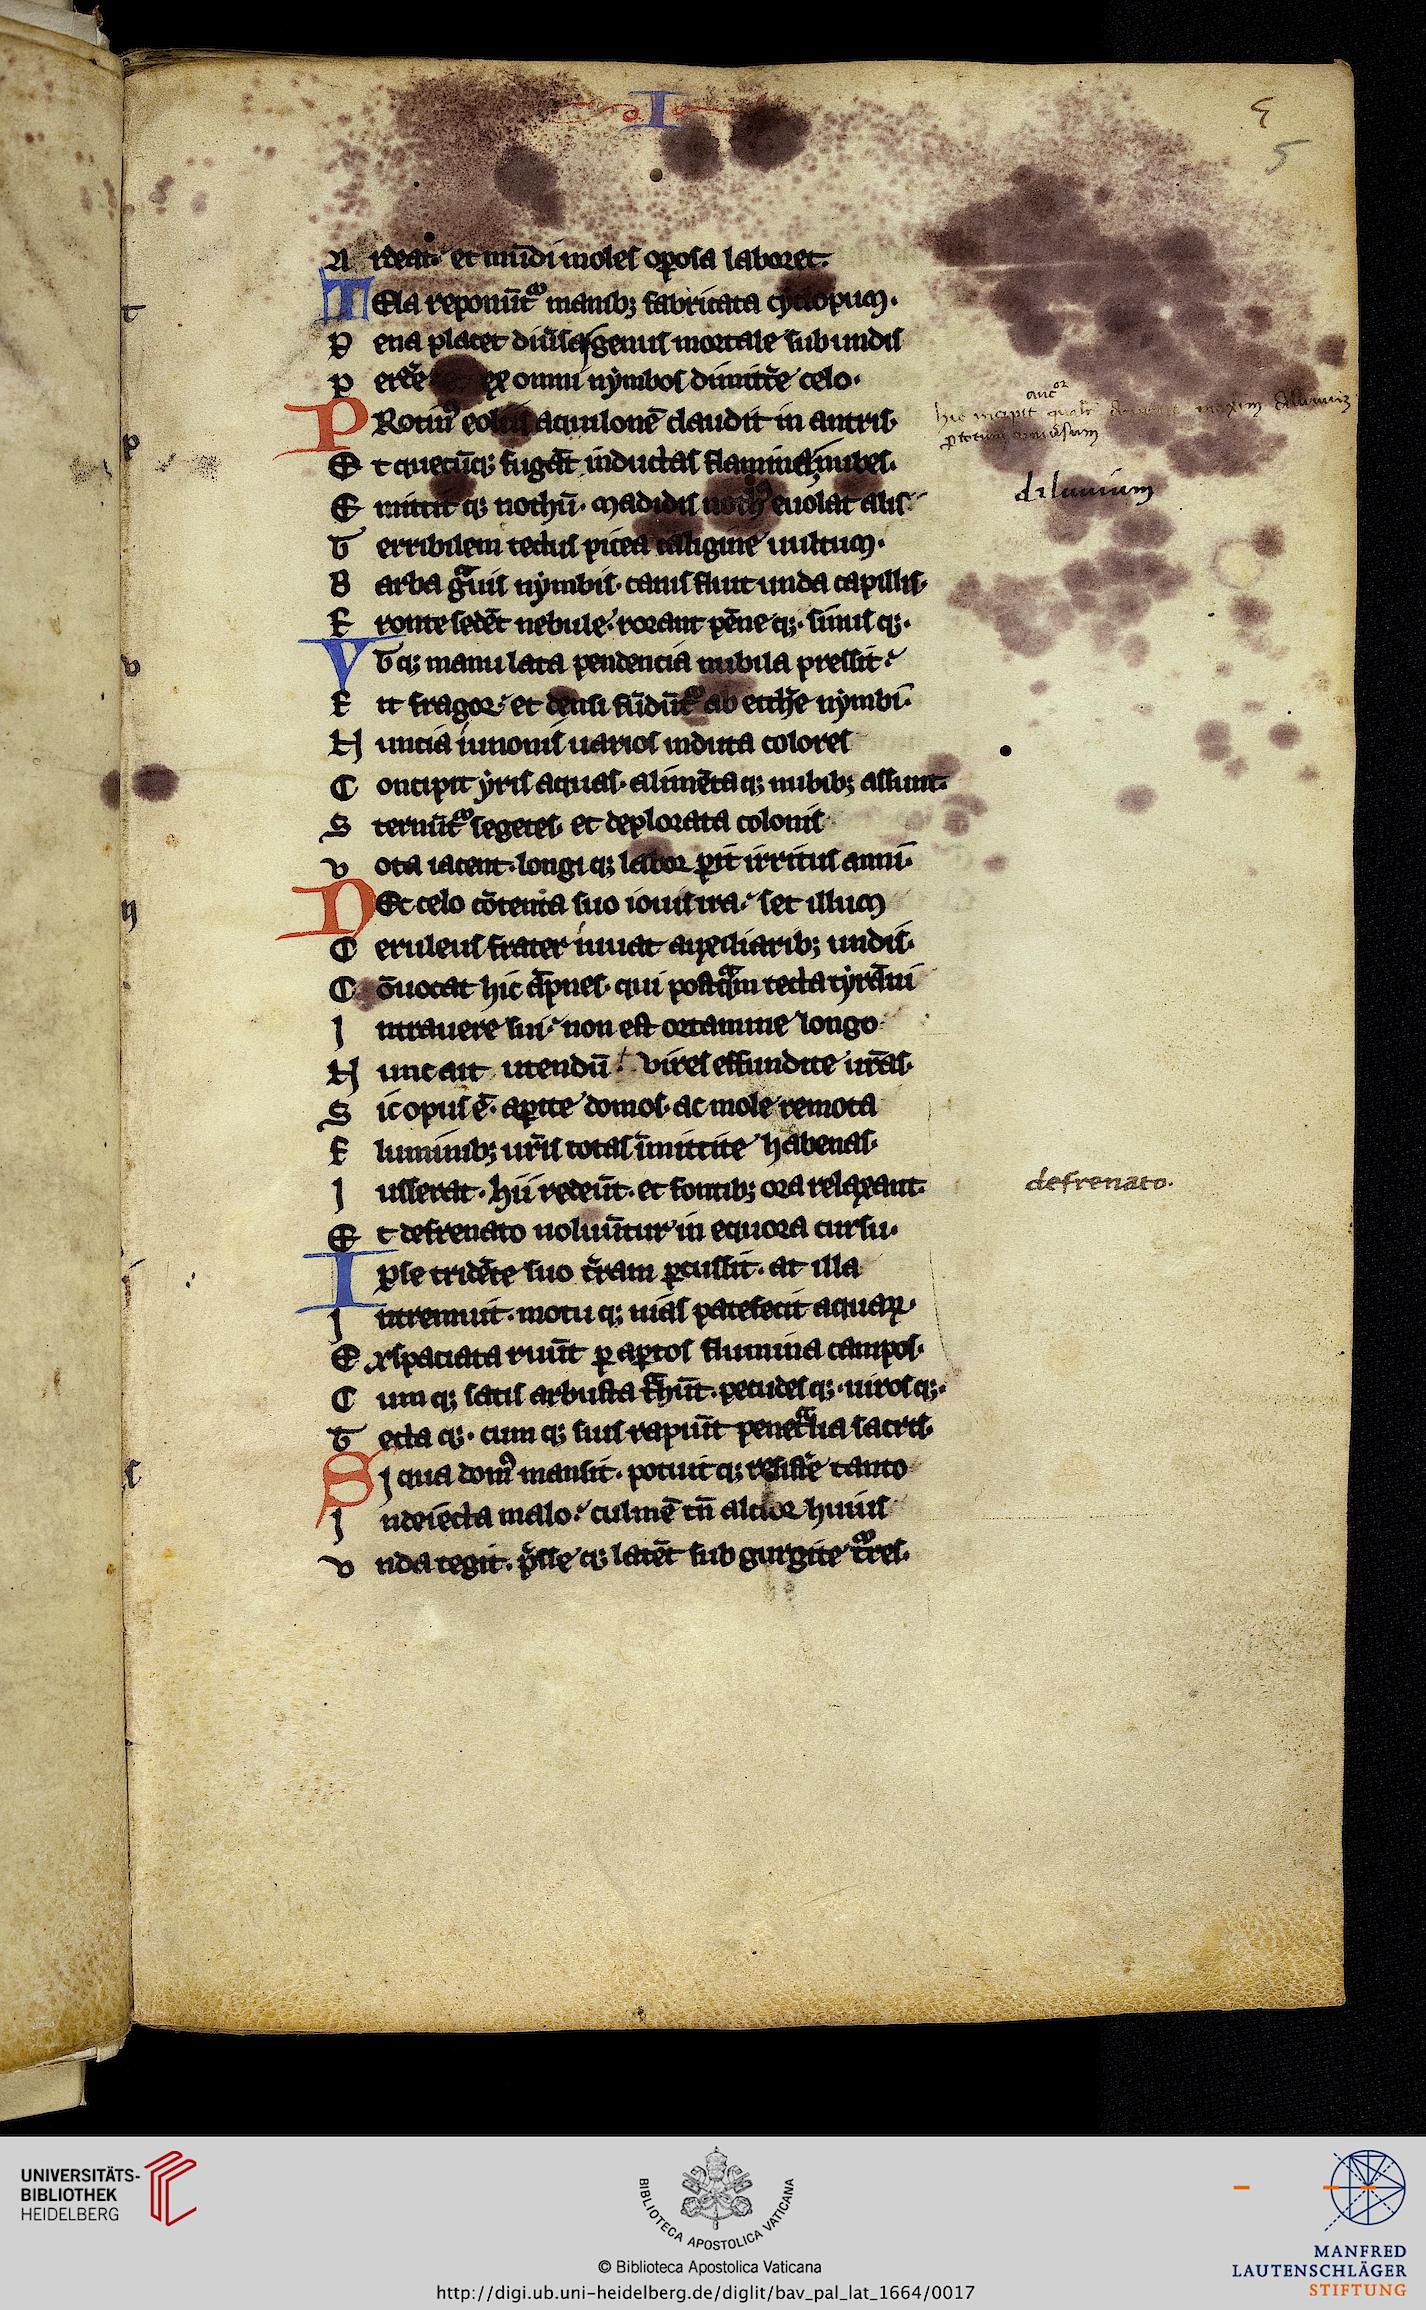 I
5
5
A rdeat et mūdi moles oꝑosa laboret.
TEla reponūt᷑ manibꝫ fabricata cyclopum.
P ena placet diu᷑sa genus mortale sub undis
P erde᷑ ex omni nymbos dimitte᷑ celo.
PRotin᷒ eoliis aquilonē claudit in antris.
E t quecūqꝫ fugāt inductas flamina nubes.
E mittit qꝫ nothū. Madidis noth᷒ euolat alis
T erribilem tectus picea caligine uultum.
B arba gᷓuis nymbis. canis fluit unda capillis.
F ronte sedēt nebule. rorant pēne qꝫ. sinus qꝫ.
VTqꝫ manu lata pendencia nubila pressit.
F it fragor. et densi fūdūt᷑ ab ethe᷑e nymbi.
H uncia iunonis uarios induta colores
C oncipit yris aquas. alimētaqꝫ nubibꝫ assunt.
S ternūt᷑ segetes. et deplorata colonis
V ota iacent. longi qꝫ labor ꝑit irritus anni.
NEc celo cōtenta suo iouis ira. set illum
C eruleus frater iuuat auxiliaribꝫ undis.
C ōuocat hic āpnes. qui postqᷓm tecta tyrāni
I ntrauere sui. non est ortamine longo
H unc ait utendū. vires effundite ur̄as.
S ic opus ē. aꝑite domos. ac mole remota
F luminibꝫ ur̄is totas īmittite habenas.
I usserat. hii redeūt. et fontibꝫ ora relaxant.
E t defrenato uoluūtur in equora cursu.
Ipse tridēte suo t᷑ram ꝑcussit. at illa
I ntremuit. motu qꝫ uias patefecit aquaꝝ.
E xspaciata ruūt ꝑ aꝑtos flumina campos.
C um qꝫ satis arbusta t᷑hūt. pecudes qꝫ. uiros qꝫ.
T ecta qꝫ. cum qꝫ suis rapiūt penetᷓlia sacris.
SI qua dom᷒ mansit. potuit qꝫ resiste᷑ tanto
I ndeiecta malo. culmē tn̄ alcior huius
V nda tegit. p᷑sse qꝫ latēt sub gurgite t᷑res.
auctor
hic incipit
ꝑ totum uniu᷑sum
diluuium
defrenato.
UNIVERSITÄTS-
BIBLIOTHEK
HEIDELBERG
BIBLIOTECA APOSTOLICA VATICANA
© Biblioteca Apostolica Vaticana
http://digi.ub.uni-heidelberg.de/diglit/bav_pal_lat_1664/0017
MANFRED
LAUTENSCHLÄGER
STIFTUNG